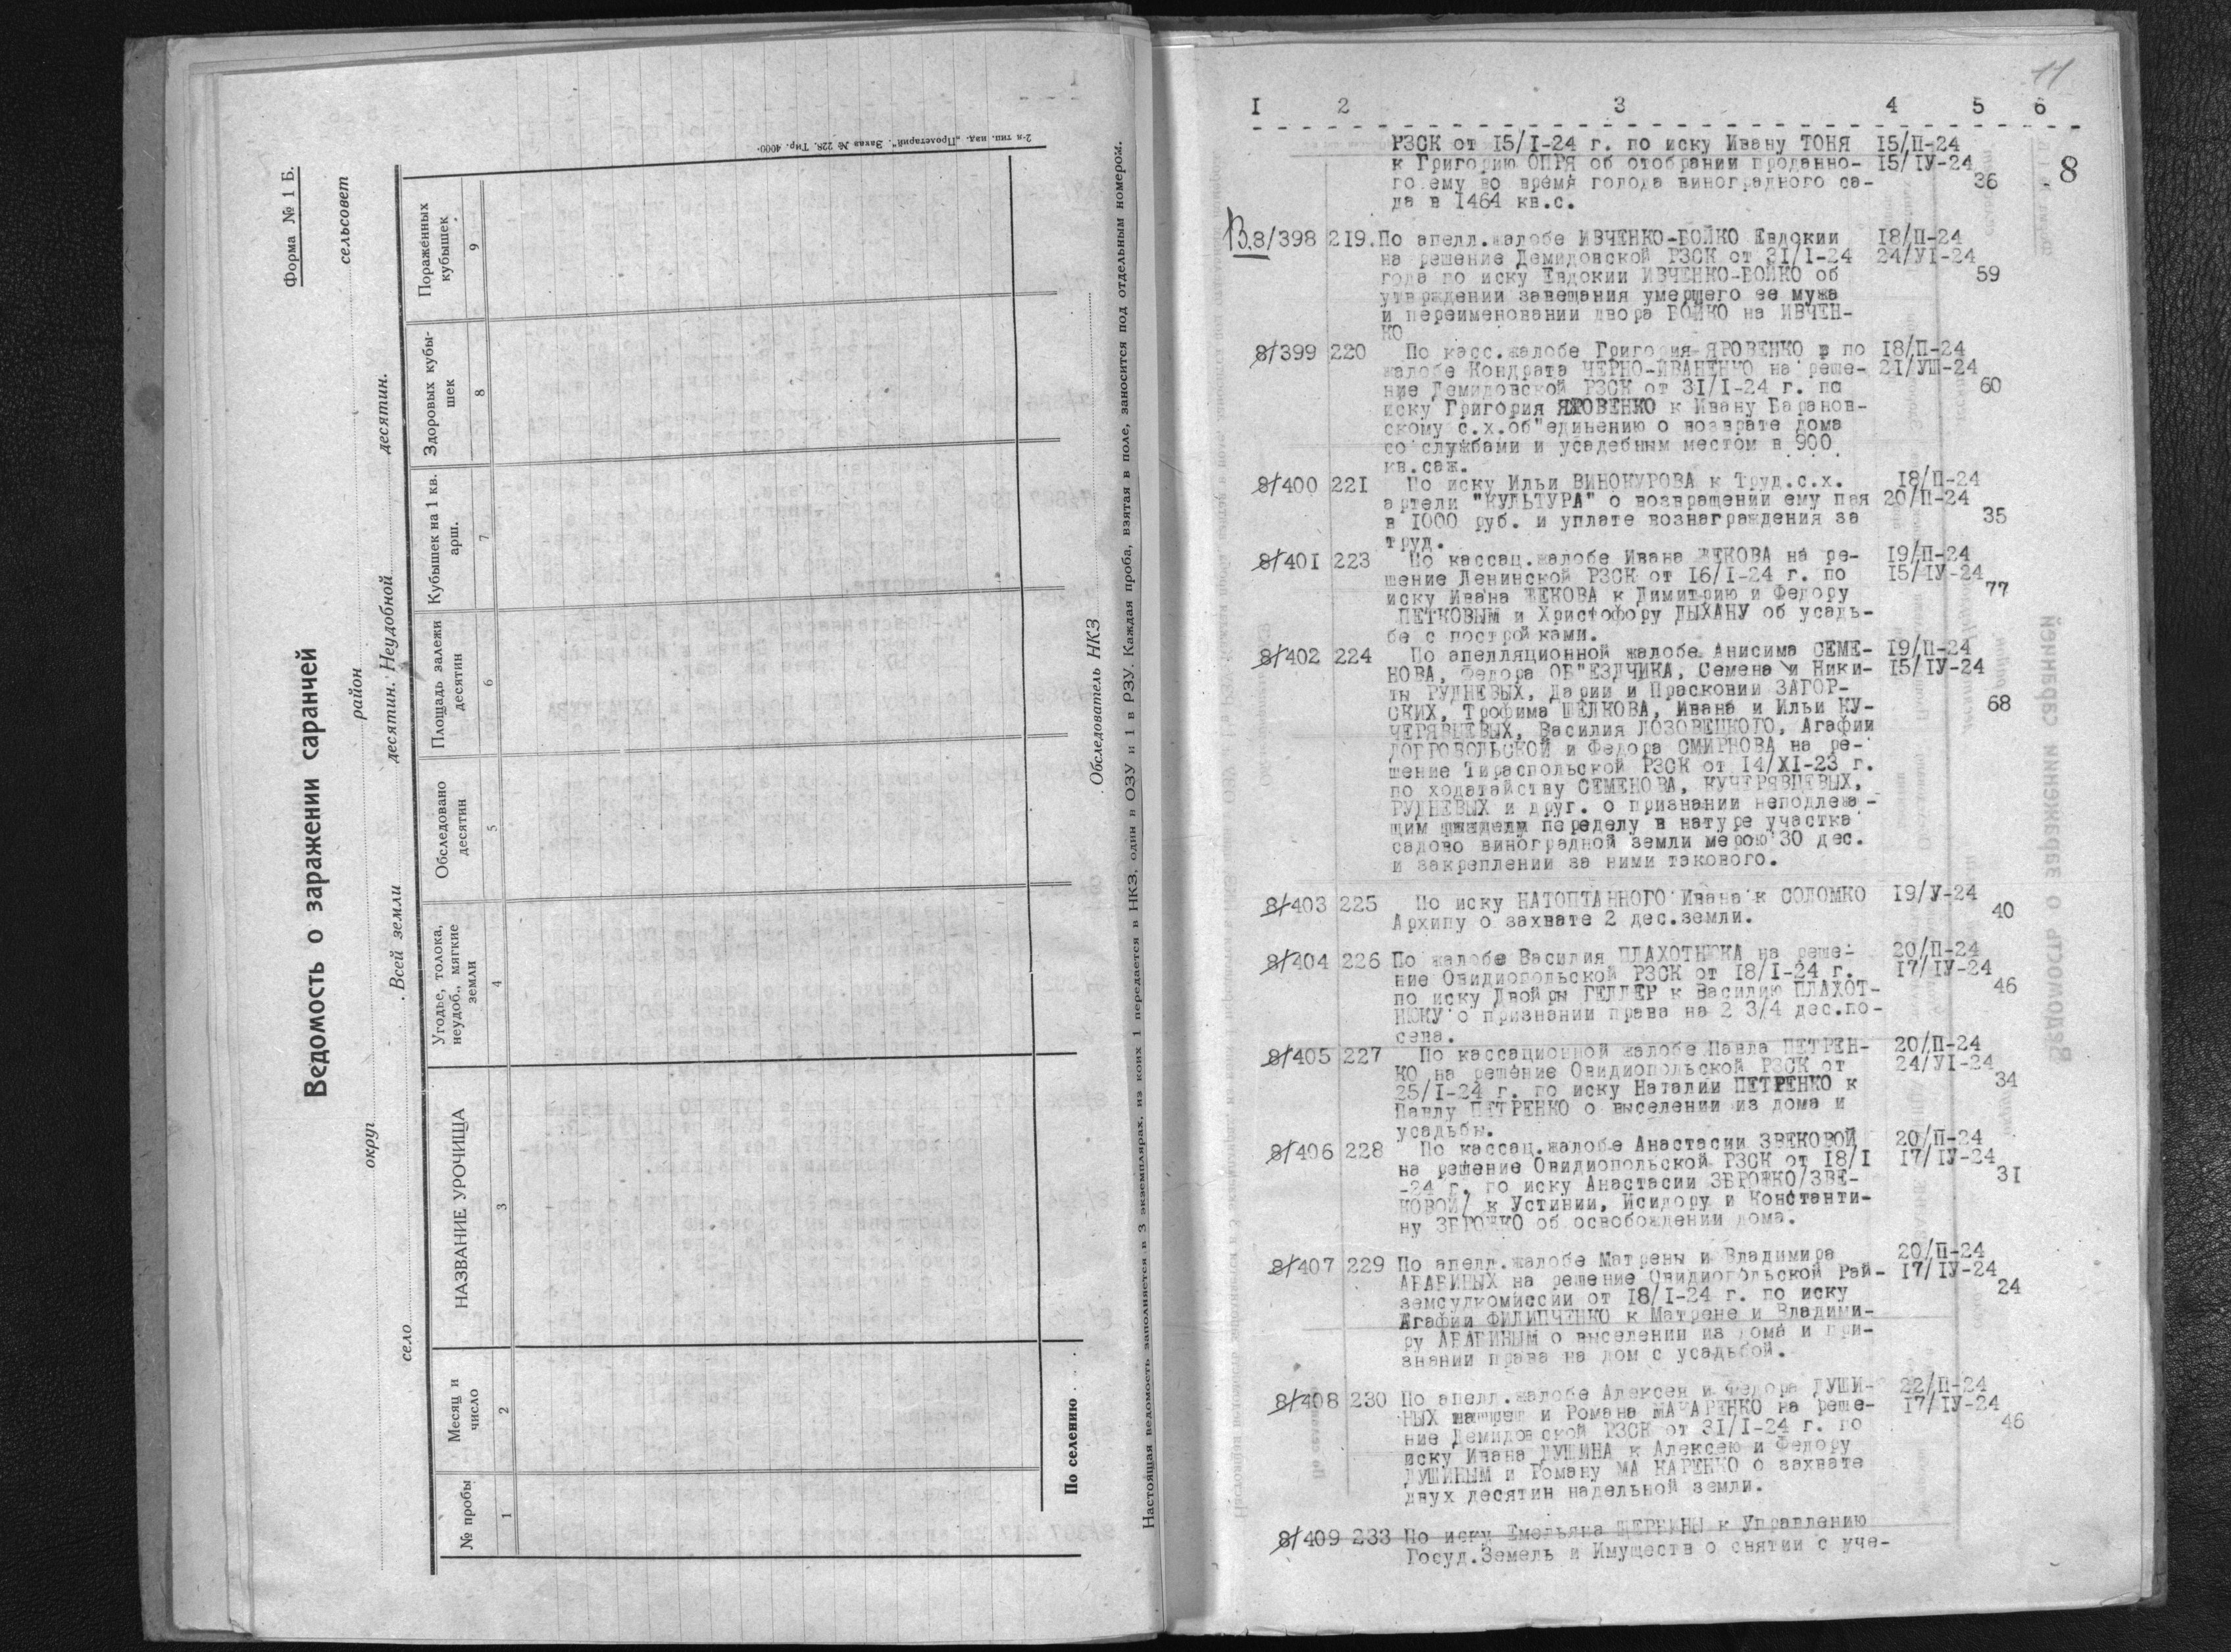 Форма № 1 Б.
Ведомость о заражении саранчей
округ район сельсовет
село Всей земли десятин. Неудобной десятин.
№ пробы
Месяц и число
НАЗВАНИЕ УРОЧИЩА
Угодье, толока, неудоб., мягкие земли
Обследовано десятин
Площадь залежи десятин
Кубышек на 1 кв. арш.
Здоровых кубышек
Поражённых кубышек
1 2 3 4 5 6 7 8 9
По селению
Обследователь НКЗ
Настоящая ведомость заполняется в 3 экземплярах, из коих 1 передается в НКЗ, один в ОЗУ и 1 в РЗУ. Каждая проба, взятая в поле, заносится под отдельным номером.
2-я тип. изд. „Пролетарий“. Заказ № 228. Тир. 4000.
11
I 2 3 4 5 6
РЗСК от 15/I-24 г. по иску Ивану ТОНЯ 15/П-24
к Григорию ОПРЯ об отобрании проданно- 15/IУ-24
го ему во время голода виноградного са- 36 8
да в 1464 кв.с.
В.8/398 219. По апелл.жалобе ИВЧЕНКО-БОЙКО Евдокии 18/П-24
на решение Демидовской РЗСК от 31/I-24 24/УI-24
года по иску Евдокии ИВЧЕНКО-БОЙКО об 59
утверждении завещания умершего ее мужа
и переименовании двора БОЙКО на ИВЧЕН-
КО
8/399 220 По касс.жалобе Григория ЯРОВЕНКО и по 18/П-24
жалобе Кондрата ЧЕРНО-ИВАНЕНКО на реше- 21/УШ-24
ние Демидовской РЗСК от 31/I-24 г. по 60
иску Григория ЯРОВЕНКО к Ивану Баранов-
скому с.х.об"единению о возврате дома
со службами и усадебным местом в 900
кв.саж.
8/400 221 По иску Ильи ВИНОКУРОВА к Труд.с.х. 18/П-24
артели "КУЛЬТУРА" о возвращении ему пая 20/П-24
в 1000 руб. и уплате вознаграждения за 35
труд.
8/401 223 По кассац.жалобе Ивана ЖЕКОВА на ре- 19/П-24
шение Ленинской РЗСК от 16/I-24 г. по 15/IУ-24
иску Ивана ЖЕКОВА к Димитрию и Федору 77
ПЕТКОВЫМ и Христофору ДЫХАНУ об усадь-
бе с постройками.
8/402 224 По апелляционной жалобе Анисима СЕМЕ- 19/П-24
НОВА, Федора ОБ"ЕЗДЧИКА, Семена и Ники- 15/IУ-24
ты РУДНЕВЫХ, Дарии и Прасковии ЗАГОР-
СКИХ, Трофима ШЕЛКОВА, Ивана и Ильи КУ- 68
ЧЕРЯВЦЕВЫХ, Василия ЛОЗОВЕЦКОГО, Агафии
ДОБРОВОЛЬСКОЙ и Федора СМИРНОВА на ре-
шение Тираспольской РЗСК от 14/XI-23 г.
по ходатайству СЕМЕНОВА, КУЧЕРЯВЦЕВЫХ,
РУДНЕВЫХ и друг. о признании неподлежа-
щим переделу в натуре участка
садово виноградной земли мерою 30 дес.
и закреплении за ними такового.
8/403 225 По иску НАТОПТАННОГО Ивана к СОЛОМКО 19/У-24
Архипу о захвате 2 дес.земли. 40
8/404 226 По жалобе Василия ПЛАХОТНЮКА на реше- 20/П-24
ние Овидиопольской РЗСК от 18/I-24 г. 17/IУ-24
по иску Двойры ГЕЛЛЕР к Василию ПЛАХОТ- 46
НЮКУ о признании права на 2 3/4 дес.по-
сева.
8/405 227 По кассационной жалобе Павла ПЕТРЕН- 20/П-24
КО на решение Овидиопольской РЗСК от 24/УI-24
25/I-24 г. по иску Наталии ПЕТРЕНКО к 34
Павлу ПЕТРЕНКО о выселении из дома и
усадьбы.
8/406 228 По кассац.жалобе Анастасии ЗВЕКОВОЙ 20/П-24
на решение Овидиопольской РЗСК от 18/I 17/IУ-24
-24 г. по иску Анастасии ЗБРОЖКО/ЗВЕ- 31
КОВОЙ/ к Устинии, Исидору и Константи-
ну ЗБРОЖКО об освобождении дома.
8/407 229 По апелл.жалобе Матрены и Владимира 20/П-24
АБАБИНЫХ на решение Овидиопольской Рай- 17/IУ-24
земсудкомиссии от 18/I-24 г. по иску 24
Агафии ФИЛИПЧЕНКО к Матрене и Владими-
ру АБАБИНЫМ о выселении из дома и при-
знании права на дом с усадьбой.
8/408 230 По апелл.жалобе Алексея и Федора ДУШИ- 22/П-24
НЫХ и Романа МАКАРЕНКО на реше- 17/IУ-24
ние Демидовской РЗСК от 31/I-24 г. по 46
иску Ивана ДУШИНА к Алексею и Федору
ДУШИНЫМ и Роману МАКАРЕНКО о захвате
двух десятин надельной земли.
8/409 233 По иску Емельяна ЩЕРБИНЫ к Управлению
Госуд.Земель и Имуществ о снятии с уче-